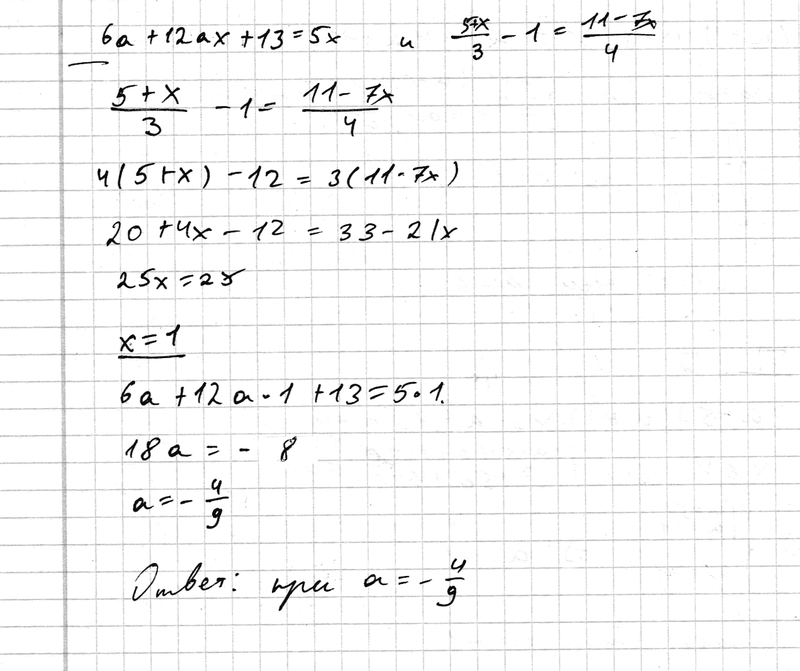 6a + 12ax + 13 = 5x и (5+x)/3 - 1 = (11-7x)/4
(5+x)/3 - 1 = (11-7x)/4
4(5+x) - 12 = 3(11-7x)
20 + 4x - 12 = 33 - 21x
25x = 25
x = 1
6a + 12a · 1 + 13 = 5 · 1.
18a = - 8
a = - 4/9
Ответ: при a = - 4/9